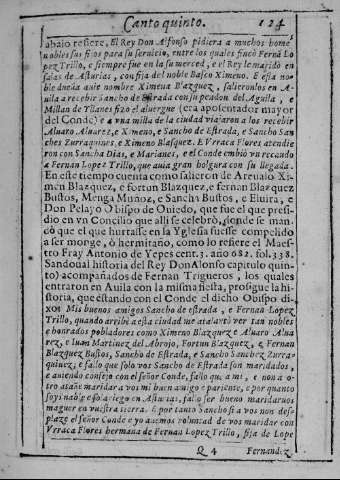 Canto quinto. 124
abaio refiere, El Rey Don Alfonso pidiera a muchos home
nobles sus fijos para su servicio, entre los quales fincò Fernã Lo
pez Trillo, e siempre fue en la su merced, e el Rey le maridò en
falas de Asturias, con fija del noble Basco Ximeno. E esta no
ble dueña auie nombre Ximena Blazquez, salieronlos en A-
uila a recebir Sancho de Estrada con su pendon del Aguila, e
Millan de Yllanes fizo el aluergue (era aposentador mayor
del Conde) e a vna milla de la ciudad viajaron a los recebir
Aluaro Aluarez, e Ximeno, e Sancho de Estrada, e Sancho San
ches Zurraquines, e Ximeno Blasquez. E Vrraca Flores atendie
ron con Sancha Dias, e Marianes, e el Conde embiò vn recaudo
a Fernan Lopez Trillo, que auia gran bolgura con su llegada.
En este tiempo cuenta como salieron de Areualo Xi-
men Blazquez, e fortun Blazquez, e fernan Blazquez
Bustos, Menga Muñoz, e Sancha Bustos, e Eluira, e
Don Pelayo Obispo de Ouiedo, que fue el que presi-
dio en vn Concilio que alli se celebrò, donde se man-
dò que el que hurtasse en la Yglesia fuesse compelido
a ser monge, ò hermitaño, como lo refiere el Maes-
tro Fray Antonio de Yepes cent. 3. año 682. fol. 338.
Sandoual historia del Rey Don Alonso capitulo quin-
to) acompañados de Fernan Trigueros, los quales
entraron en Auila con la misma fiesta, prosigue la hi-
storia, que estando con el Conde el dicho Obispo di-
xo: Mis buenos amigos Sancho de estrada, e Fernan Lopez
Trillo, quando arribè a esta ciudad me atalantò ver tan nobles
e honrados pobladores como Ximeno Blazquez e Aluaro Alua
rez, e Iuan Martinez del Abrojo, Fortun Blazquez, e Fernan
Blazquez Bustos, Sancho de Estrada, e Sancho Sanchez Zurra-
quines, e fallo que solo vos Sancho de Estrada son maridados,
e auiendo consejo con el señor Conde, fallo que a mi, e non a o-
tro atañe maridar a vos mi buen amigo e pariente, e por quanto
soys noble e solariego en Asturias, fallo ser bueno maridaruos
maguer en vuestra tierra. E por tanto Sancho si a vos non des-
plaze el señor Conde e yo auemos voluntad de vos maridar con
Vrraca Flores hermana de Fernan Lopez Trillo, fija de Lope
Q 4 Fernandez